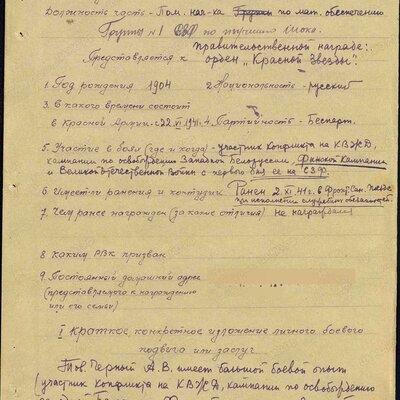 Должность часть - Пом. нач-ка Группы по мат. обеспечению
Группа № 1 СЭГ по тушению Шоке.
Представляется к правительственной награде:
орден „Красной Звезды"
1. Год рождения 1904 2 Национальность - русский
3. В какого времени состоит
в Красной Армии - с 22.VI 1941 г. 4. Партийность - Беспарт.
5. Участие в боях (где и когда) - участник Конфликта на КВЖД,
кампании по освобождению Западной Белоруссии, Финской Кампании
и Великой отечественной Войны с первого дня ее на СЗФ.
6 Имеет ли ранения и контузии Ранен 2.XI.41 г. в
при исполнении служебн. обязанностей.
7. Чем ранее награжден (за какие отличия) не награждался
8 каким РВК призван
9. Постоянный домашний адрес
(представляемого к награждению
или его семьи)
I Краткое конкретное изложение личного боевого
подвига или заслуг
Тов. Черный А. В. имеет большой боевой опыт
(участник Конфликта на КВЖД, кампании по освобождению